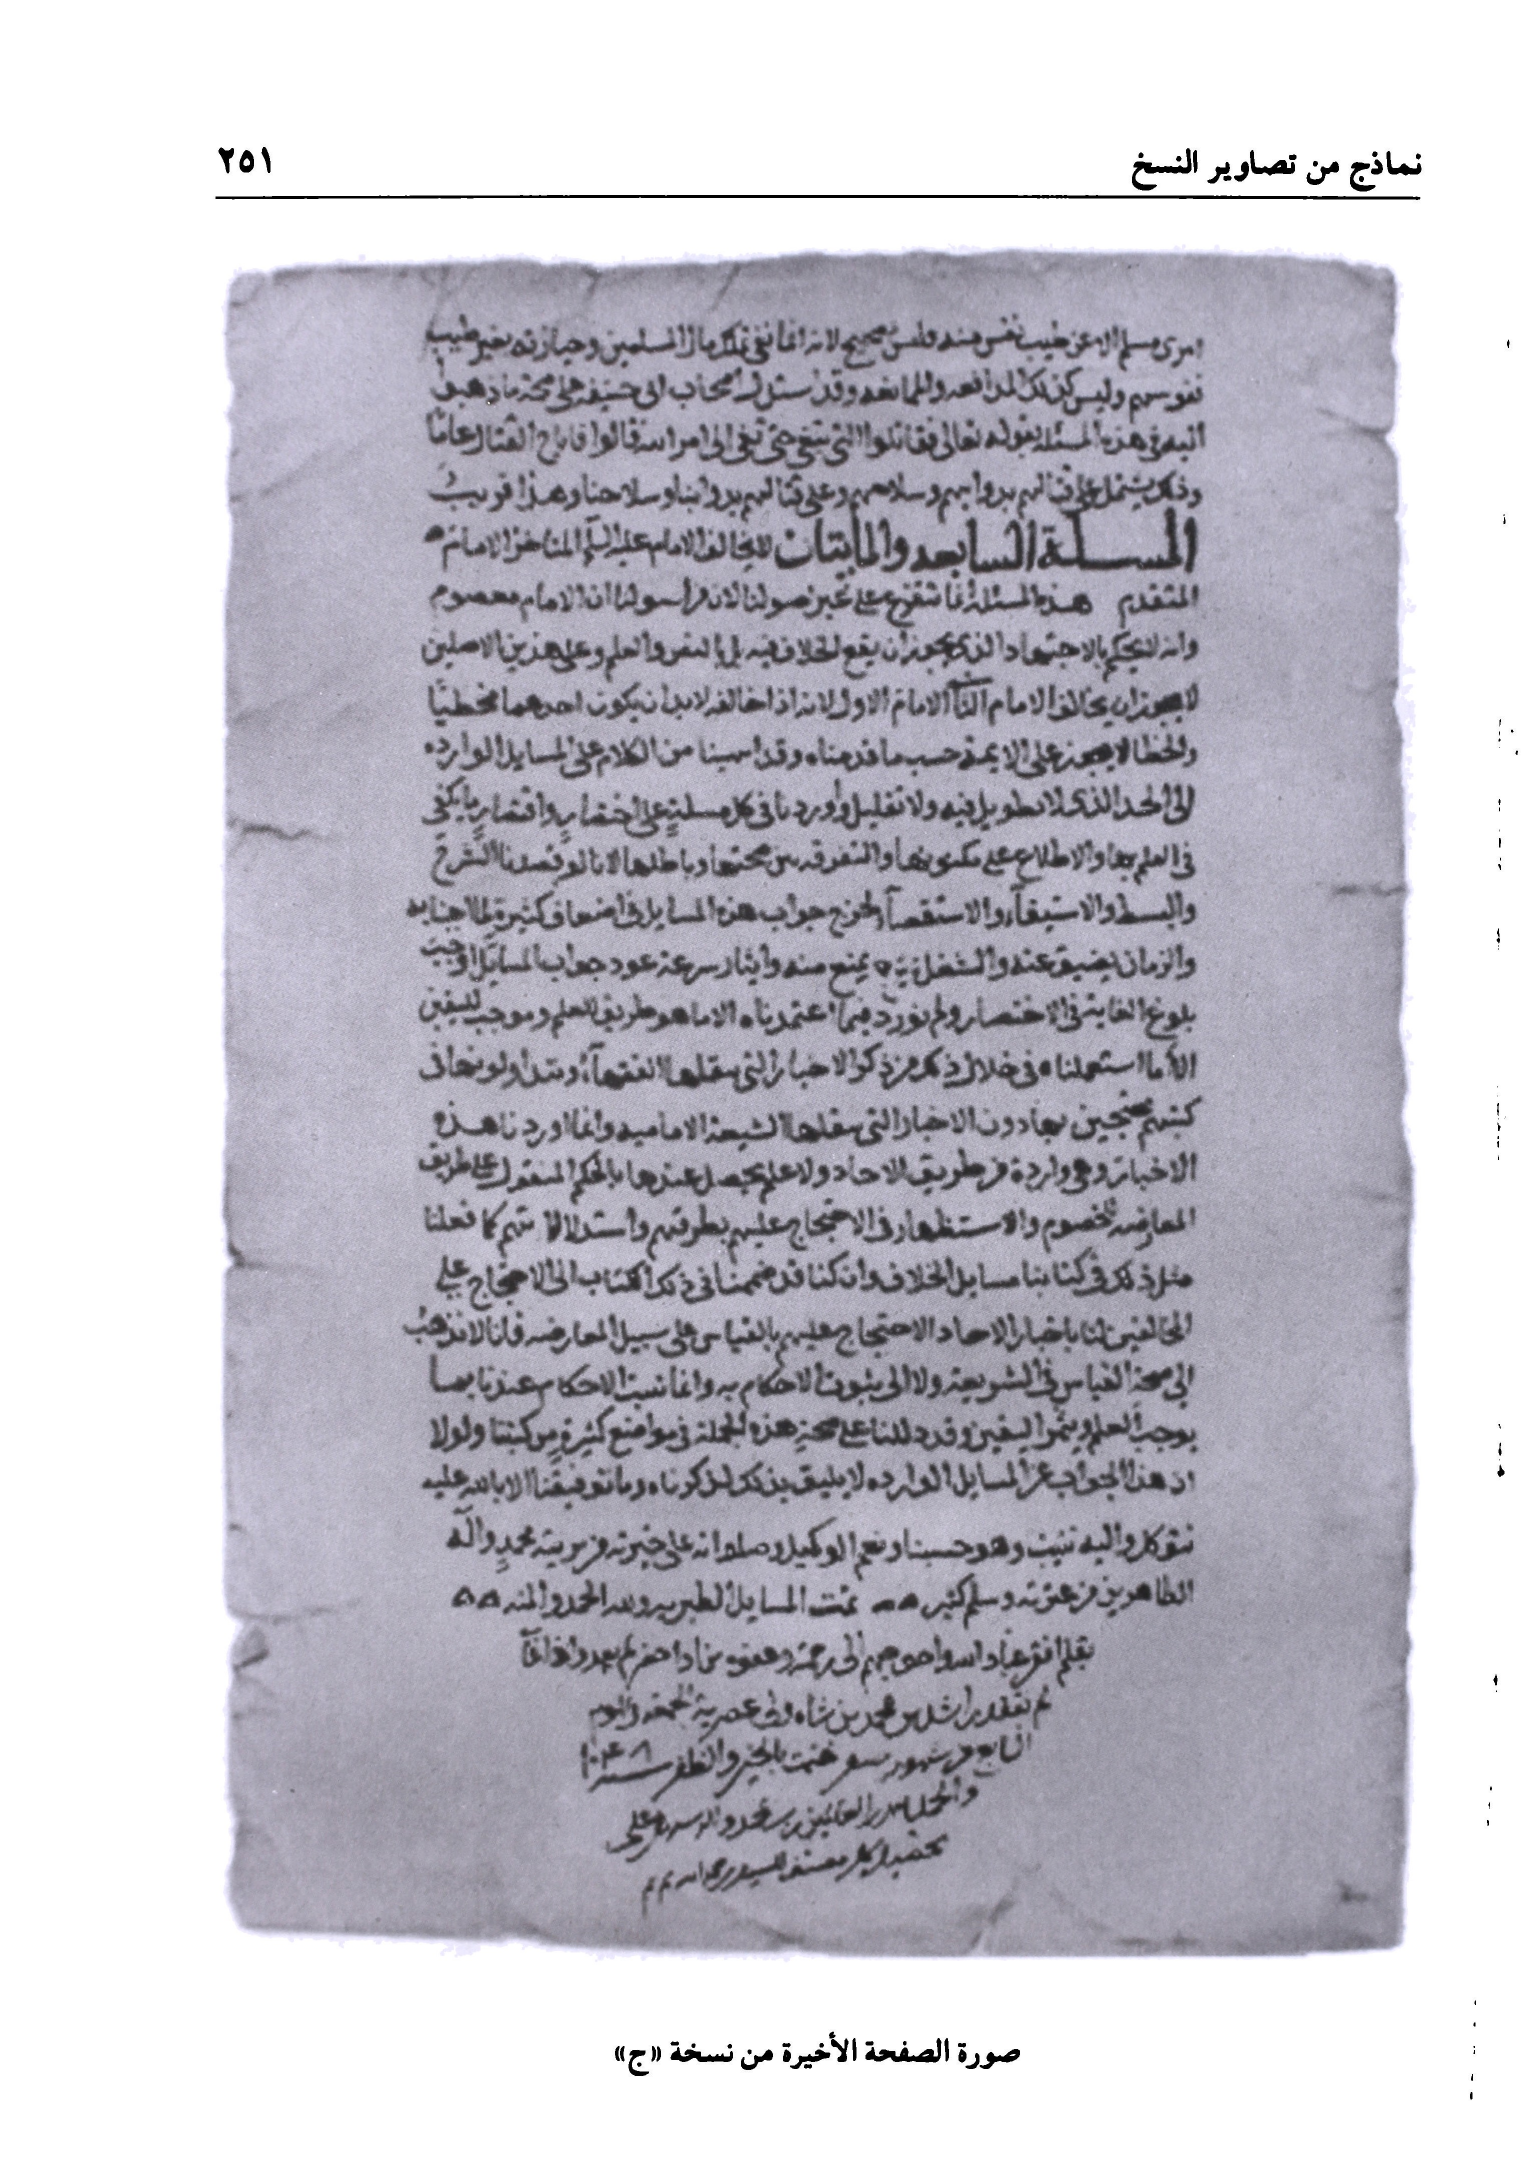 نماذج من تصاوير النسخ
٢٥١
امرى مسلم الا عن طيب نفس منه فليس بصحيح لانه انما نفى تملك مال المسلمين وحيازته بغير طيب
نفوسهم وليس كذلك المدافعه والممانعه وقد استدل اصحاب ابى حنيفه على صحة ما ذهبوا
اليه فى هذه المسئله بقوله تعالى فقاتلوا التى تبغى حتى تفى الى امر الله قالوا فاباح القتال عاما
وذلك يشتمل على قتالهم بدوابهم وسلاحهم وعلى قتالهم بدوابنا وسلاحنا وهذا قريب
المسلة السابعه والمايتان لا يخالف الامام عليه السلم المتاخر الامام
المتقدم هذه المسئلة انما تتفرع على غير اصولنا لان من اصولنا ان الامام معصوم
وانه لا يحكم بالاجتهاد الذى يجوز ان يقع الخلاف فيه بل بالنص والعلم وعلى هذين الاصلين
لا يجوز ان يخالف الامام الثانى الامام الاول لانه اذا خالفه لا بد ان يكون احدهما مخطيا
والخطا لا يجوز على الايمة حسب ما قدمناه وقد اجبنا من الكلام على المسايل الوارده
الى الحد الذى لا تطويل فيه ولا تقليل واوردنا فى كل مسلة على اختصار واقتصار ما يكفى
فى العلم بها والاطلاع على مكنونها والتفرقه بين صحتها وباطلها لانا لو قصدنا الشرح
والبسط والاستيفآء والاستقصآ لخرج جواب هذه المسايل فى اضعاف كثيرة لما اجبنا به
والزمان يضيق عنه والشغل يمنع منه وايثار سرعة عود جواب المسايل اوجب
بلوغ الغاية فى الاختصار ولم نورد فيما اعتمدناه الا ما هو طريق للعلم وموجب لليقين
الا ما استعملناه فى خلال ذلك من ذكر الاخبار التى ينقلها الفقهآء ويتداولونها فى
كتبهم محتجين بها دون الاخبار التى ينقلها الشيعة الاماميه وانما اوردنا هذه
الاخبار وهى واردة من طريق الاحاد ولا علم يحصل عندها بالحكم المنقول على طريق
المعارضه للخصوم والاستظهار فى الاحتجاج عليهم بطرقهم واستدلالاتهم كما فعلنا
مثل ذلك فى كتابنا مسايل الخلاف وان كنا قد ضممنا فى ذلك الكتاب الى الاحتجاج على
المخالفين لنا باخبار الاحاد الاحتجاج عليهم بالقياس على سبيل المعارضه فانا لا نذهب
الى صحة القياس فى الشريعة ولا الى ثبوت الاحكام به وانما تثبت الاحكام عندنا بما
يوجب العلم ويثمر اليقين وقد دللنا على صحة هذه الجملة فى مواضع كثيرة من كتبنا ولولا
ان هذا الجواب عن المسايل الوارده لا يليق بذلك لذكرناه وما توفيقنا الا بالله عليه
نتوكل واليه ننيب وهو حسبنا ونعم الوكيل وصلواته على خيرته من بريته محمد وآله
الطاهرين من عترته وسلم كثير تمت المسايل الطبريه ولله الحمد والمنه
بقلم افقر عباد الله واحوجهم الى رحمة وعفوه
راشد بن محمد بن شاه عصرية الجمعه
من شهور ختمت بالخير والظفر سنة
والحمد لله رب العالمين
صورة الصفحة الأخيرة من نسخة «ج»